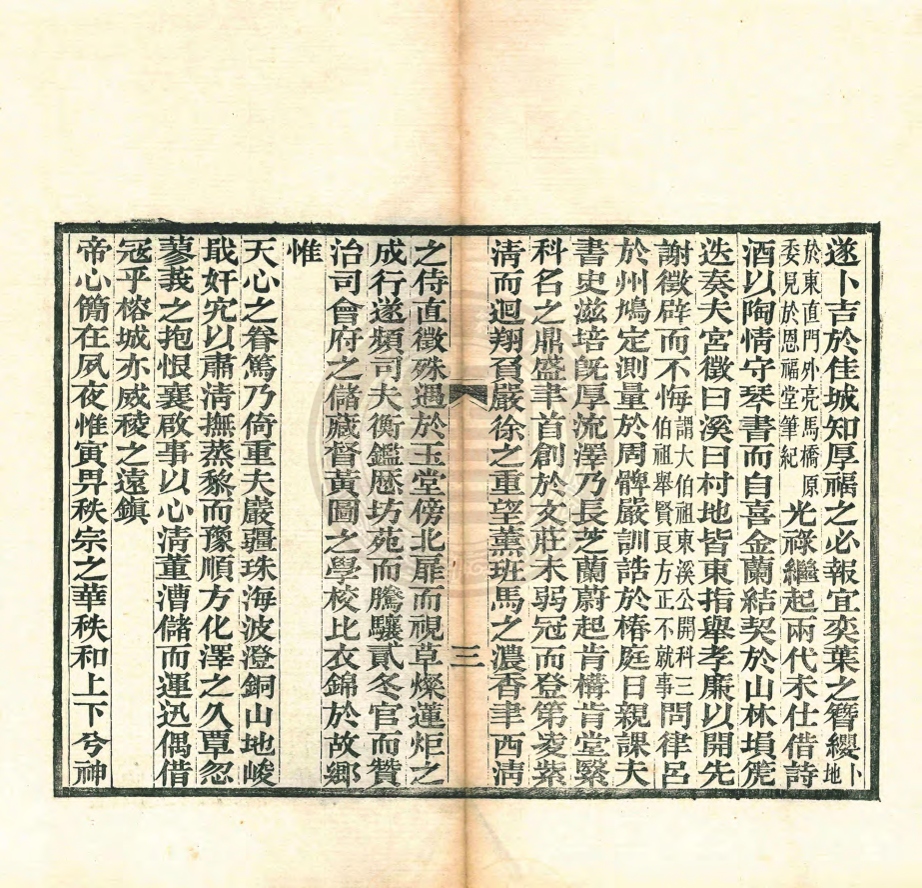 遂卜吉於佳城知厚福之必報宜奕葉之簪纓卜地
於東直門外亮馬橋原
委見於恩福堂筆紀
光祿繼起兩代未仕借詩
酒以陶情守琴書而自喜金蘭結契於山林塤箎
迭奏夫宮徵曰溪曰村地皆東指舉孝廉以開先
謝徵辟而不悔
謂大伯祖東溪公開科三
伯祖舉賢良方正不就事
問律呂
於州鳩定測量於周髀嚴訓誥於椿庭日親課夫
書史滋培旣厚流澤乃長芝蘭蔚起肯構肯堂繄
科名之鼎盛聿首創於文莊未弱冠而登第凌紫
淸而迴翔負嚴徐之重望薰班馬之濃香聿西淸
三
之侍直徵殊遇於玉堂傍北扉而視草燦蓮炬之
成行遂頻司夫衡鑑歷坊苑而騰驤貳冬官而贊
治司會府之儲藏督黃圖之學校比衣錦於故鄉
惟
天心之眷篤乃倚重夫嚴疆珠海波澄銅山地峻
戢奸宄以肅淸撫蒸黎而豫順方化澤之久覃忽
蓼莪之抱恨襄啟事以心淸董漕儲而運迅偶借
冠乎榕城亦威稜之遠鎭
帝心簡在夙夜惟寅畀秩宗之華秩和上下兮神